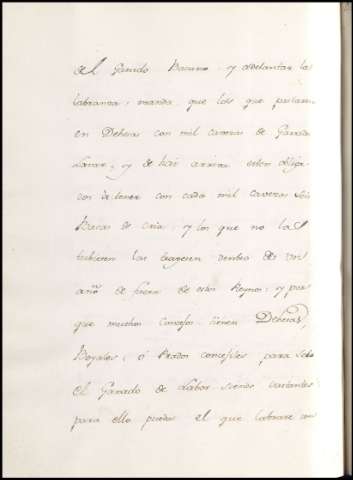 el Ganado Bacuno, y adelantar la
labranza; manda, que los que pastaren
en Dehesas con mil cavezas de Ganado
Lanar, y de hai arriva esten obliga-
dos à tener con cada mil cavezas seis
Bacas de cria; y los que no las
tubieren las traygan dentro de un
año de fuera de estos Reynos; y por
que muchos Concejos tienen Dehesas,
Boyales, ó Prados concejiles para solo
el Ganado de Labor siendo bastantes
para ello pueda el que labrare con